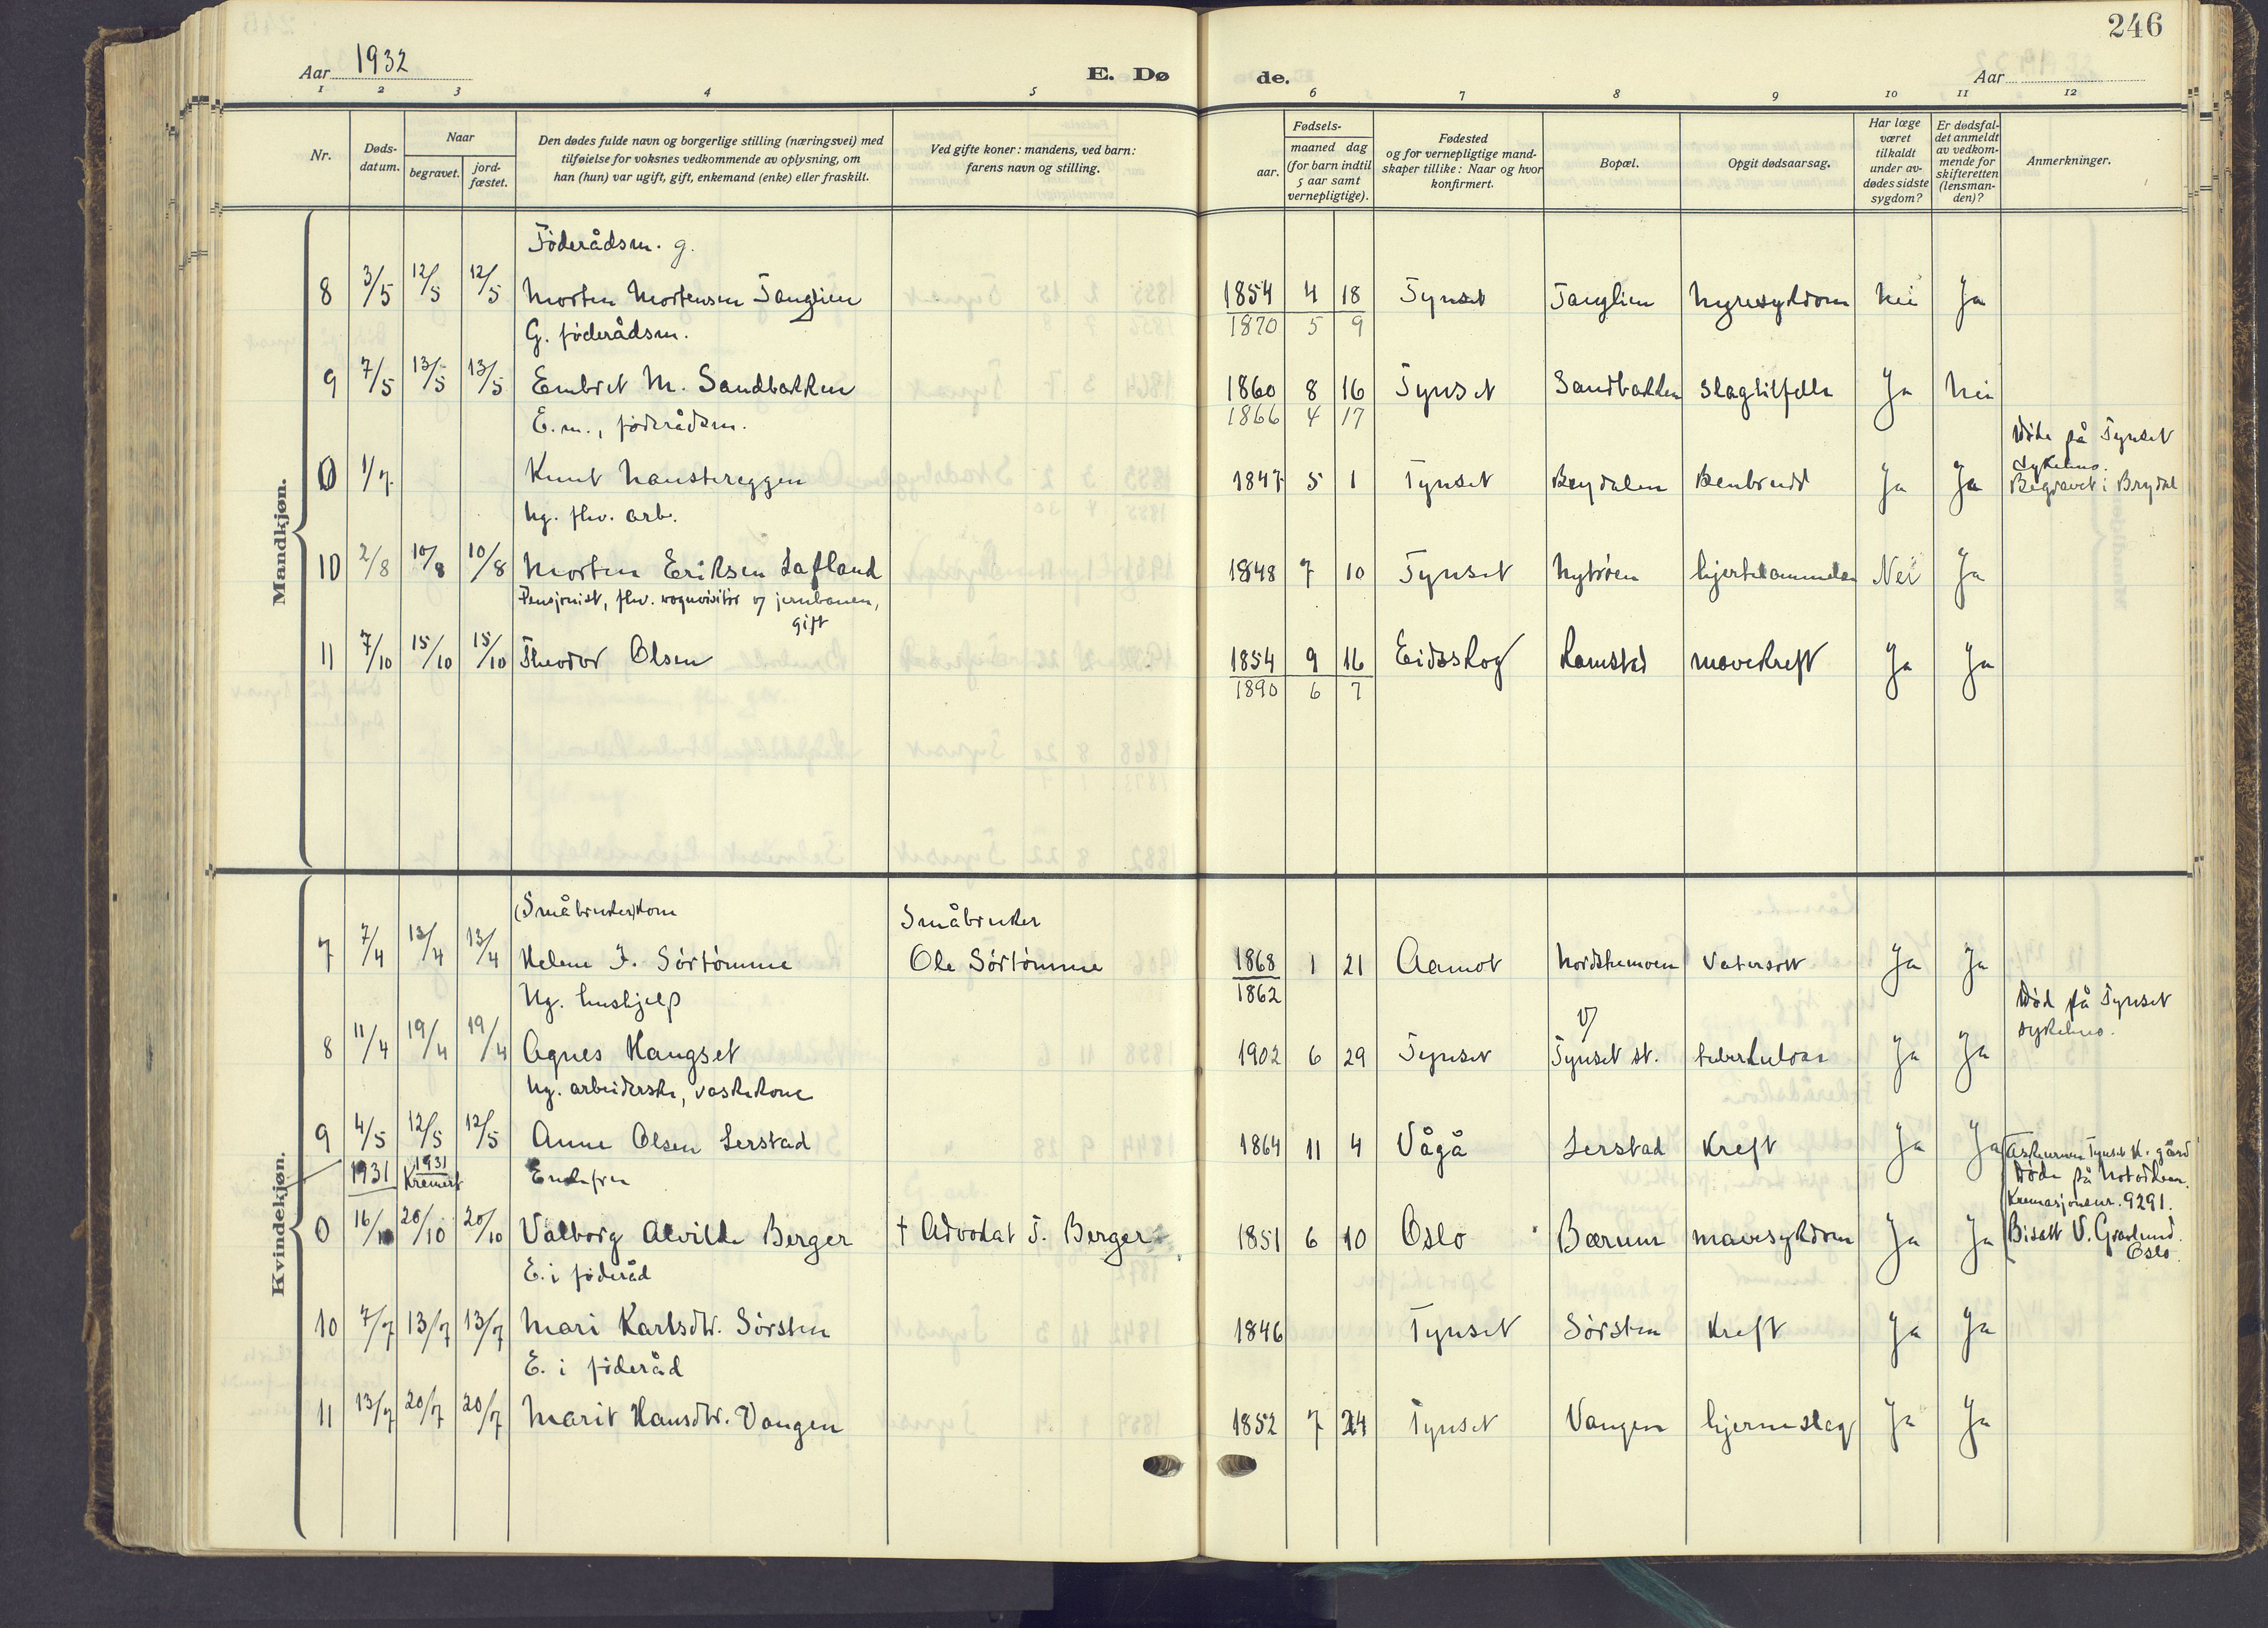 246
Aar 1932
E. Dø de.
Aar
1 2 3 4 5 6 7 8 9 10 11 12
Nr.
Døds-
datum.
Naar
begravet.
jord-
fæstet.
Den dødes fulde navn og borgerlige stilling (næringsvei) med
tilføielse for voksnes vedkommende av oplysning, om
han (hun) var ugift, gift, enkemand (enke) eller fraskilt.
Ved gifte koner: mandens, ved barn:
farens navn og stilling.
Fødsels-
aar.
maaned dag
(for barn indtil
5 aar samt
vernepligtige).
Fødested
og for vernepligtige mand-
skaper tillike: Naar og hvor
konfirmert.
Bopæl.
Opgit dødsaarsag.
Har læge
været
tilkaldt
under av-
dødes sidste
sygdom?
Er dødsfal-
det anmeldt
av vedkom-
mende for
skifteretten
(lensman-
den)?
Anmerkninger.
Mandkjøn.
Føderådsm. g.
8 3/5 12/5 12/5 Morten Mortensen Tanglien 1854 4 18 Tynset Tanglien Nyresykdom Nei Ja
1870 5 9
G. føderådsm.
9 7/5 13/5 13/5 Embret M. Sandbakken 1860 8 16 Tynset Sandbakken Slagtilfelle Ja Nei
1866 4 17
E.m., føderådsm.
0 1/7 Knut Haustereggen 1847 5 1 Tynset Brydalen Benbrudd Ja Ja Døde på Tynset
sykehus.
Begravet i Brydal
Ug. fhv. arb.
10 2/8 10/8 10/8 Morten Eriksen Lafland 1848 7 10 Tynset Nytrøen hjertelammelse Nei Ja
Pensjonist, fhv. vognvisitør v/ jernbanen,
gift
11 7/10 15/10 15/10 Theodor Olsen 1854 9 16 Eidsskog Ramstad mavekreft Ja Ja
1890 6 7
Kvindekjøn.
(Småbruker)kone Småbruker
7 7/4 13/4 13/4 Helene J. Sørtømme Ole Sørtømme 1868 1 21 Aamot Nordskumoen Vatersott Ja Ja
1862
Ug. hushjelp
8 11/4 19/4 19/4 Agnes Haugset 1902 6 29 Tynset v/ Tynset st. tuberkulose Ja Ja Død på Tynset
sykehus.
Ug. arbeiderske, vaskekone
9 4/5 12/5 12/5 Anne Olsen Lerstad 1864 11 4 Vågå Lerstad Kreft Ja Ja
1931 1931 Kremert Enkefru
0 16/10 20/10 20/10 Valborg Alvilde Berger † Advokat J. Berger 1851 6 10 Oslo Bærum mavesykdom Ja Ja
Askeurnen Tynset K. gård
Døde på Notodden.
Kremasjonsnr. 9291.
Bisatt V. Gravlund.
Oslo.
E. i føderåd
10 7/7 13/7 13/7 Mari Karlsdtr. Sørsten 1846 Tynset Sørsten Kreft Ja Ja
E. i føderåd
11 13/7 20/7 20/7 Marit Hansdtr. Vangen 1852 7 24 Tynset Vangen hjerneslag Ja Ja